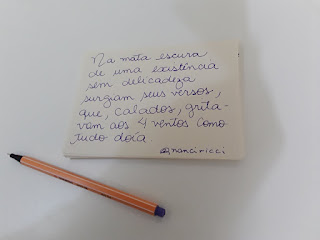 Na mata escura
de uma existência
sem delicadeza
surgiam seus versos,
que, calados, grita-
vam aos 4 ventos como
tudo doía.
@nanciricci